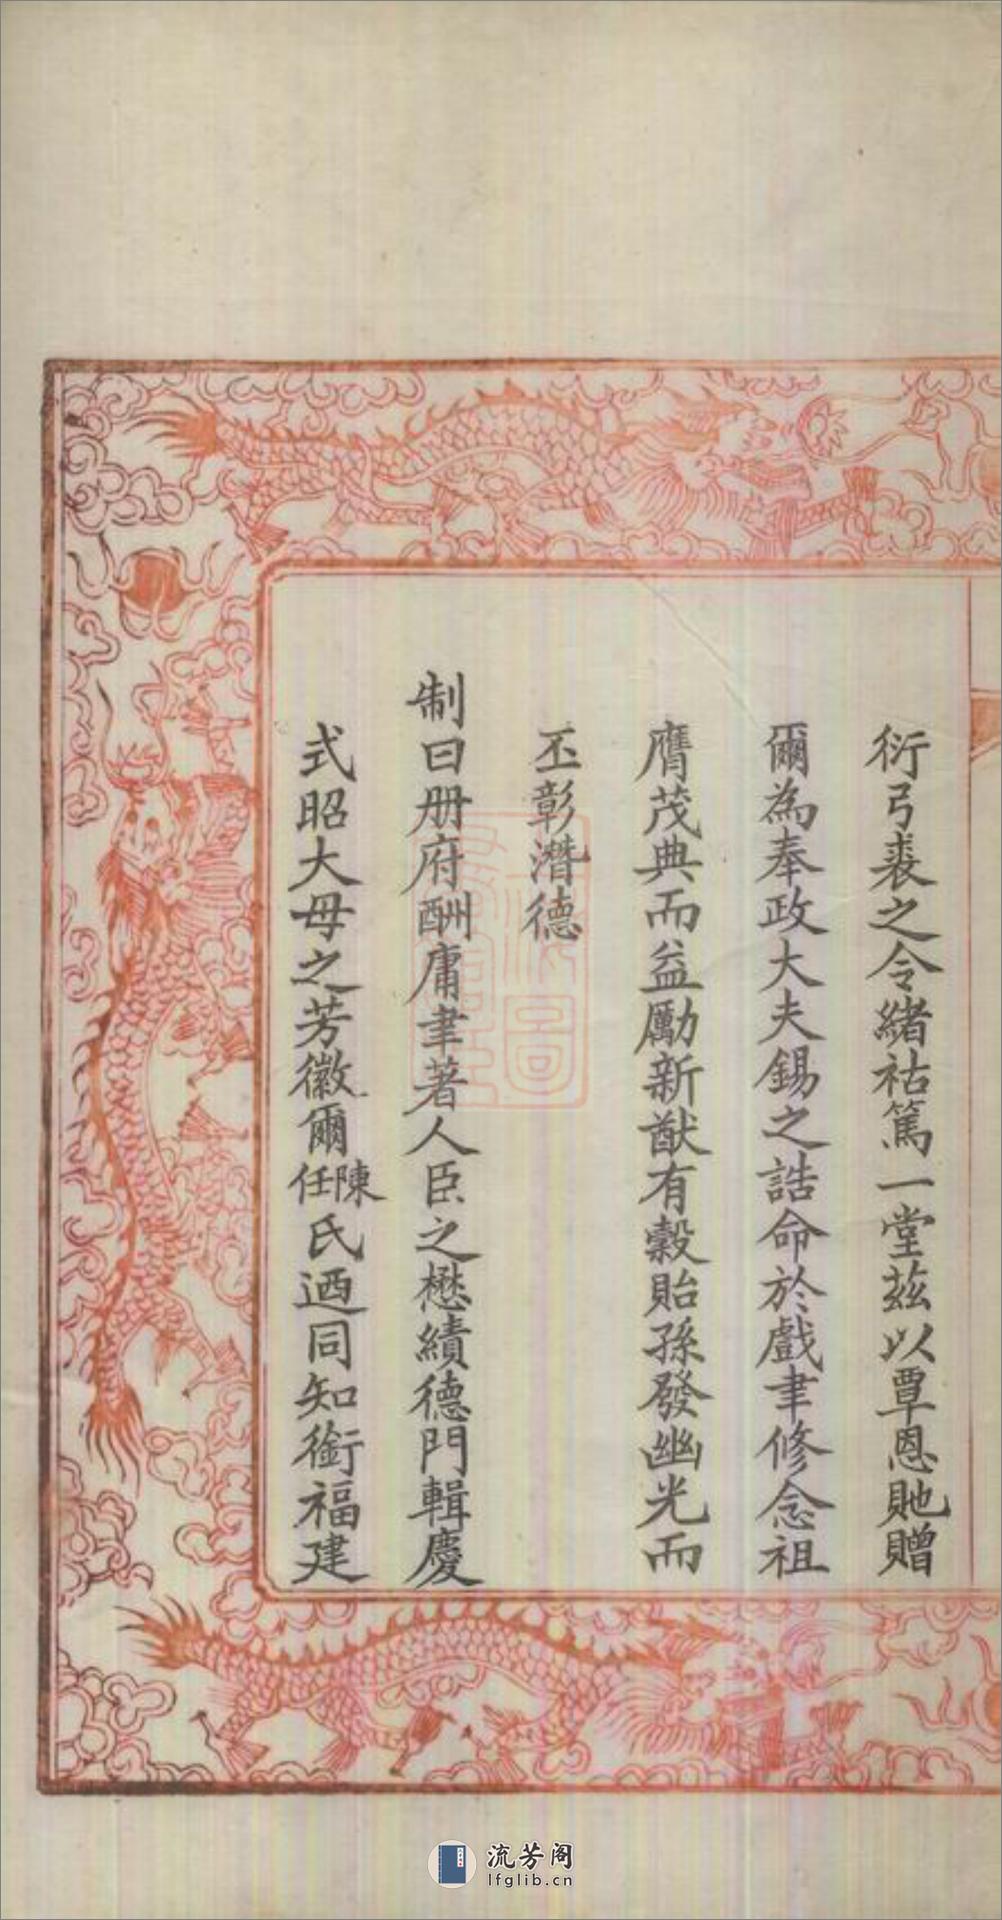 衍弓裘之令緒祜篤一堂茲以覃恩貤贈
爾為奉政大夫錫之誥命於戲聿修念祖
膺茂典而益勵新猷有穀貽孫發幽光而
丕彰潛德
制曰册府酬庸聿著人臣之懋績德門輯慶
式昭大母之芳徽爾陳任氏迺同知銜福建
流芳阁
lfglib.cn